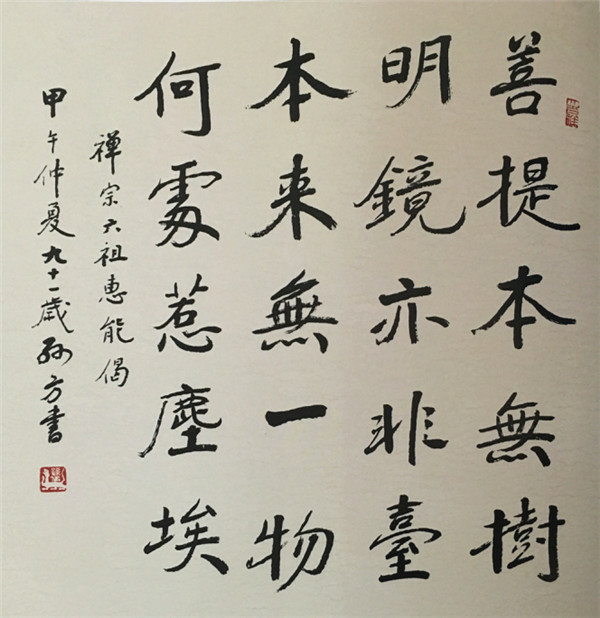 菩提本無樹
明鏡亦非臺
本来無一物
何處惹塵埃
禪宗六祖惠能偈
甲午仲夏九十一歲孫方書